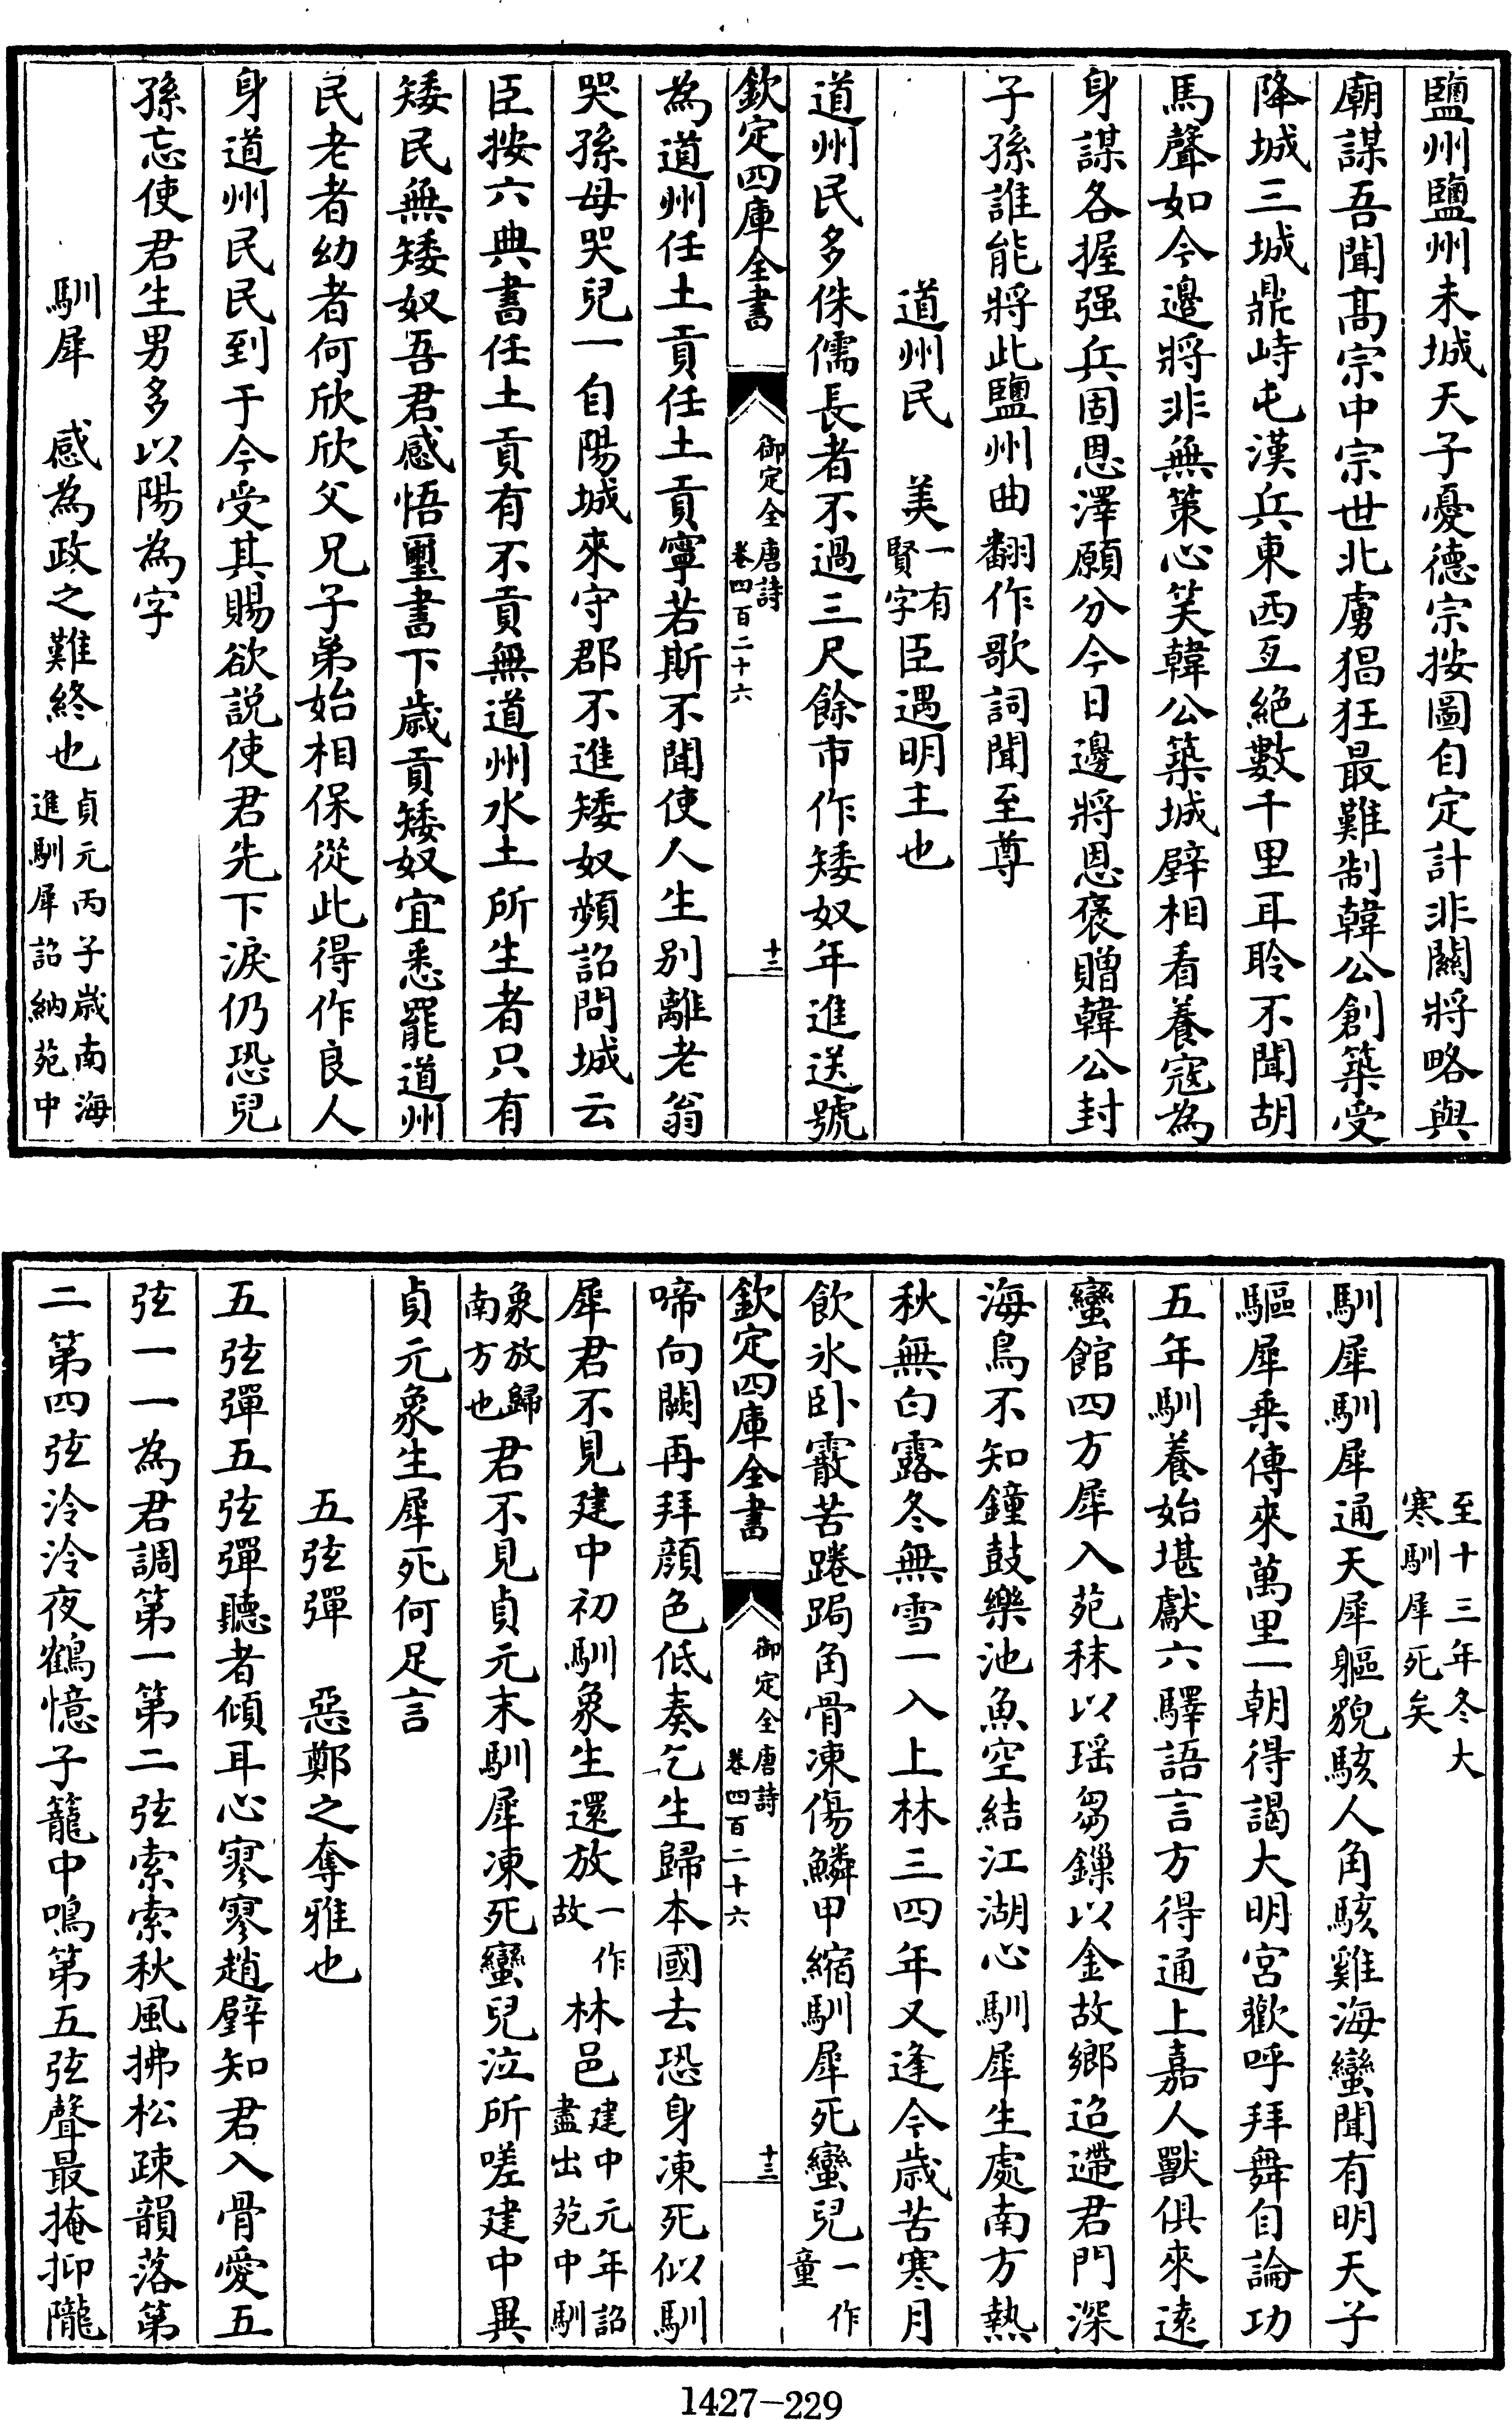 鹽州鹽州未城天子憂德宗按圖自定計非關將略與
廟謀吾聞髙宗中宗世北虜猖狂最難制韓公創築受
降城三城鼎峙屯漢兵東西亙絶數千里耳聆不聞胡
馬聲如今邊將非無策心笑韓公築城壁相看養寇為
身謀各握强兵固恩澤願分今日邊將恩褒贈韓公封
子孫誰能將此鹽州曲翻作歌詞聞至尊
道州民　美一有賢字臣遇明主也
道州民多侏儒長者不過三尺餘市作矮奴年進送號
欽定四庫全書
御定全唐詩
卷四百二十六
十二
為道州任土貢任土貢寧若斯不聞使人生别離老翁
哭孫母哭兒一自陽城來守郡不進矮奴頻詔問城云
臣按六典書任土貢有不貢無道州水土所生者只有
矮民無矮奴吾君感悟璽書下歲貢矮奴宜悉罷道州
民老者幼者何欣欣父兄子弟始相保從此得作良人
身道州民民到于今受其賜欲説使君先下淚仍恐兒
孫忘使君生男多以陽為字
馴犀　感為政之難終也貞元丙子歲南海進馴犀詔納苑中
至十三年冬大寒馴犀死矣
馴犀馴犀通天犀軀貌駭人角駭雞海蠻聞有明天子
驅犀乗傳來萬里一朝得謁大明宮歡呼拜舞自論功
五年馴養始堪獻六驛語言方得通上嘉人獸俱來逺
蠻館四方犀入苑秣以瑶芻鏁以金故鄉迢遰君門深
海鳥不知鐘鼓樂池魚空結江湖心馴犀生處南方熱
秋無白露冬無雪一入上林三四年又逢今歲苦寒月
飲氷卧霰苦踡跼角骨凍傷鱗甲縮馴犀死蠻兒一作童
欽定四庫全書
御定全唐詩
卷四百二十六
十三
啼向闕再拜顔色低奏乞生歸本國去恐身凍死似馴
犀君不見建中初馴象生還放一作故林邑建中元年詔盡出苑中馴
象放歸南方也君不見貞元末馴犀凍死蠻兒泣所嗟建中異
貞元象生犀死何足言
五弦彈　惡鄭之奪雅也
五弦彈五弦彈聽者傾耳心寥寥趙璧知君入骨愛五
弦一一為君調第一第二弦索索秋風拂松疎韻落第
二第四弦泠泠夜鶴憶子籠中鳴第五弦聲最掩抑隴
1427-229